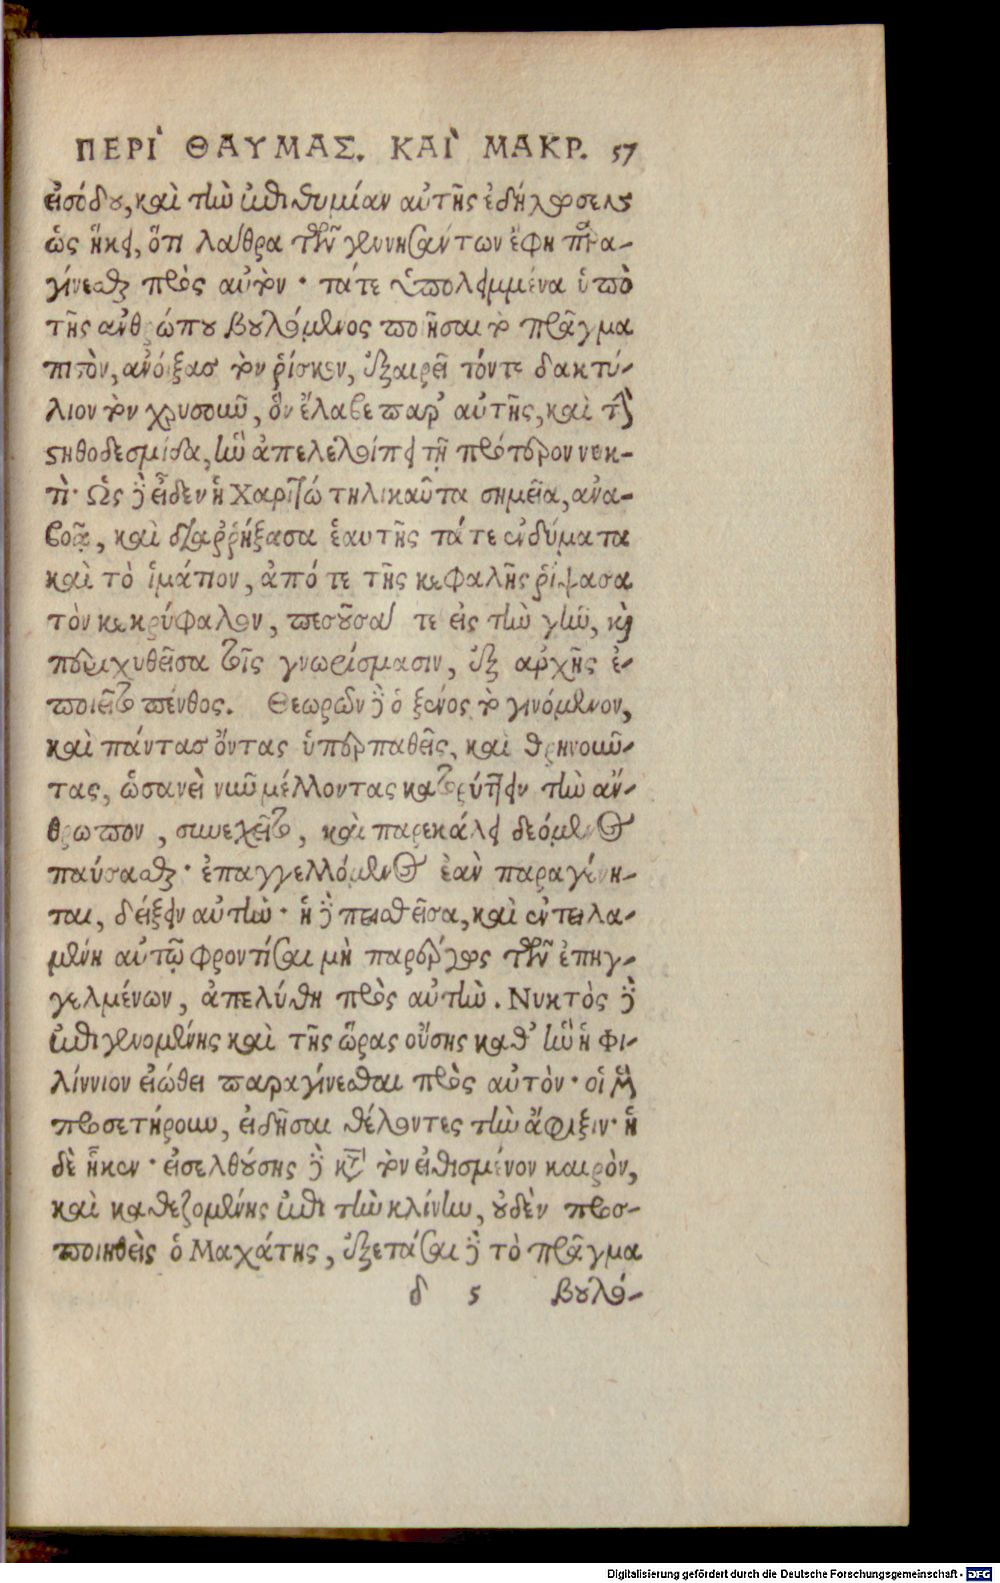 ΠΕΡῚ ΘΑΥΜΑΣ. ΚΑῚ ΜΑΚΡ. 57
εἰσόδου, καὶ τὴν ἐπιθυμίαν αὐτῆς ἐδήλωσεν
ὡς ἥκει, ὅτι λάθρα τῶν γεννησάντων ἔφη παρα-
γίνεσθαι πρὸς αὐτὸν· τά τε ὑπολελειμμένα ὑπὸ
τῆς ἀνθρώπου βουλόμενος ποιῆσαι τὸ πρᾶγμα
πιστὸν, ἀνοίξας τὸν ῥίσκον, ἐξαιρεῖ τόντε δακτύ-
λιον τὸν χρυσοῦν, ὃν ἔλαβε παρ' αὐτῆς, καὶ τὴν
στηθοδεσμίδα, ἣν ἀπελελοίπει τῇ πρότερον νυκ-
τὶ· Ὡς δὲ εἶδεν ἡ Χαριτὼ τηλικαῦτα σημεῖα, ἀνα-
βοᾷ, καὶ διαῤῥήξασα ἑαυτῆς τάτε ἐνδύματα
καὶ τὸ ἱμάτιον, ἀπό τε τῆς κεφαλῆς ῥίψασα
τὸν κεκρύφαλον, πεσοῦσά τε εἰς τὴν γῆν, καὶ
περιχυθεῖσα τοῖς γνωρίσμασιν, ἐξ ἀρχῆς ἐ-
ποιεῖτο πένθος. Θεωρῶν δὲ ὁ ξένος τὸ γινόμενον,
καὶ πάντας ὄντας ὑπερπαθεῖς, καὶ θρηνοῦν-
τας, ὡσανεὶ νῦν μέλλοντας κατορύττειν τὴν ἄν-
θρωπον, συνεχεῖτο, καὶ παρεκάλει δεόμενος
παύσασθαι· ἐπαγγελλόμενος ἐὰν παραγένη-
ται, δείξειν αὐτὴν· ἡ δὲ πεισθεῖσα, καὶ ἐντειλα-
μένη αὐτῷ φροντίσαι μὴ παρέργως τῶν ἐπηγ-
γελμένων, ἀπελύθη πρὸς αὐτὴν. Νυκτὸς δὲ
ἐπιγενομένης καὶ τῆς ὥρας οὔσης καθ' ἣν ἡ Φι-
λίννιον εἰώθει παραγίνεσθαι πρὸς αὐτὸν· οἱ μὲν
προσετήρουν, εἰδῆσαι θέλοντες τὴν ἄφιξιν· ἡ
δὲ ἧκεν· εἰσελθούσης δὲ κατὰ τὸν εἰθισμένον καιρὸν,
καὶ καθεζομένης ἐπὶ τὴν κλίνην, οὐδὲν προσ-
ποιηθεὶς ὁ Μαχάτης, ἐξετάσαι δὲ τὸ πρᾶγμα
δ 5 βουλό-
Digitalisierung gefördert durch die Deutsche Forschungsgemeinschaft - DFG